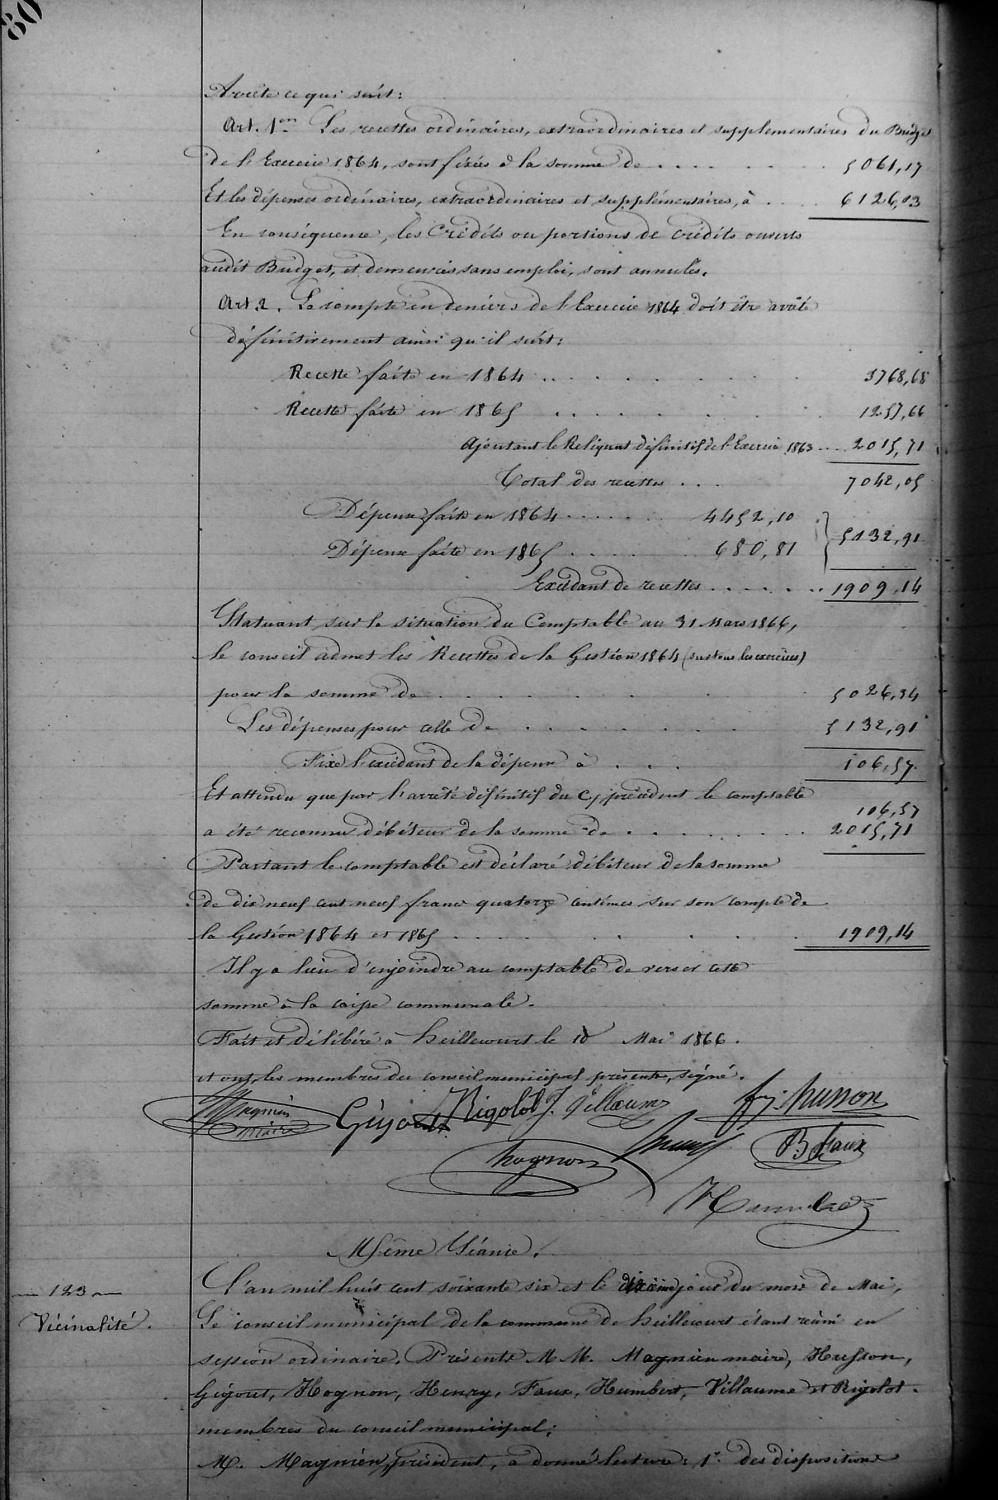 80
Arrête ce qui suit:
Art. 1er Les recettes ordinaires, extraordinaires et supplementaires du Budget
de l'Exercice 1864, sont fixées à la somme de . . . . . 5061,17
Et les dépenses ordinaires, extraordinaires et supplémentaires, à . . . . 6126,03
En conséquence, les Crédits ou portions de crédits ouverts
audit Budget, et demeurés sans emploi, sont annulés.
Art. 2. Le compte en deniers de l'Exercice 1864 doit être arrêté
définitivement ainsi qu'il suit:
Recette faite en 1864 . . . . . 3768,68
Recette faite en 1865 . . . . . 1257,66
Ajoutant le Reliquat définitif de l'Exercice 1863 . . . 2015,71
Total des recettes . . . 7042,05
Dépense faite en 1864 . . . . . 4452,10
Dépense faite en 1865 . . . . 680,81 } 5132,91
Excédant de recettes . . . . . . 1909,14
Statuant sur la situation du Comptable au 31 Mars 1866,
le conseil admet les Recettes de la Gestion 1864 (sur tous les exercices)
pour la somme de . . . . . . 5026,34
Les dépenses pour celle de . . . . . . 5132,91
Fixe l'excédant de la dépense à . . . 106,57
Et attendu que par l'arrêté définitif du Cte précédent le comptable
106,57
a été reconnu débiteur de la somme de . . . . . . 2015,71
Partant le comptable est déclaré débiteur de la somme
de dix neuf cent neuf francs quatorze centimes sur son compte de
la Gestion 1864 et 1865 . . . . . . 1909,14
Il y a lieu d'enjoindre au comptable de verser cette
somme à la caisse communale.
Fait et délibéré à heillecourt le 10 Mai 1866.
et ont, les membres du conseil municipal présents, signé.
Magnien Gégout Rigolot J. Villaume fs. husson
maire
hognon henry B. Faux
Humbert
Même Séance.
123
Vicinalité.
L'an mil huit cent soixante six et le dixième jour du mois de Mai,
Le conseil municipal de la commune de heillecourt étant réuni en
session ordinaire. Présents M M. Magnien maire, Husson,
Gégout, Hognon, Henry, Faux, Humbert, Villaume et Rigolot.
membres du conseil municipal;
M. Magnien, président, a donné lecture: 1° des dispositions